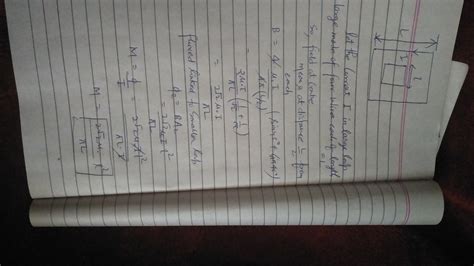 L
I
Put the current I in large loop
large made of four wire each of length
= L
So, field at centre
means at distance L/2 from
each
B = 4 × μ₀ I / 4π (L/2) (sin 45° + sin 45°)
= 2μ₀ I / πL (1/√2 + 1/√2)
= 2√2 μ₀ I / πL
fluxed linked to smaller loop
φ₂ = BA₂
= 2√2 μ₀ I / πL l²
M = φ₂ / I = 2√2 μ₀ I l² / πL I
M = 2√2 μ₀ l² / πL